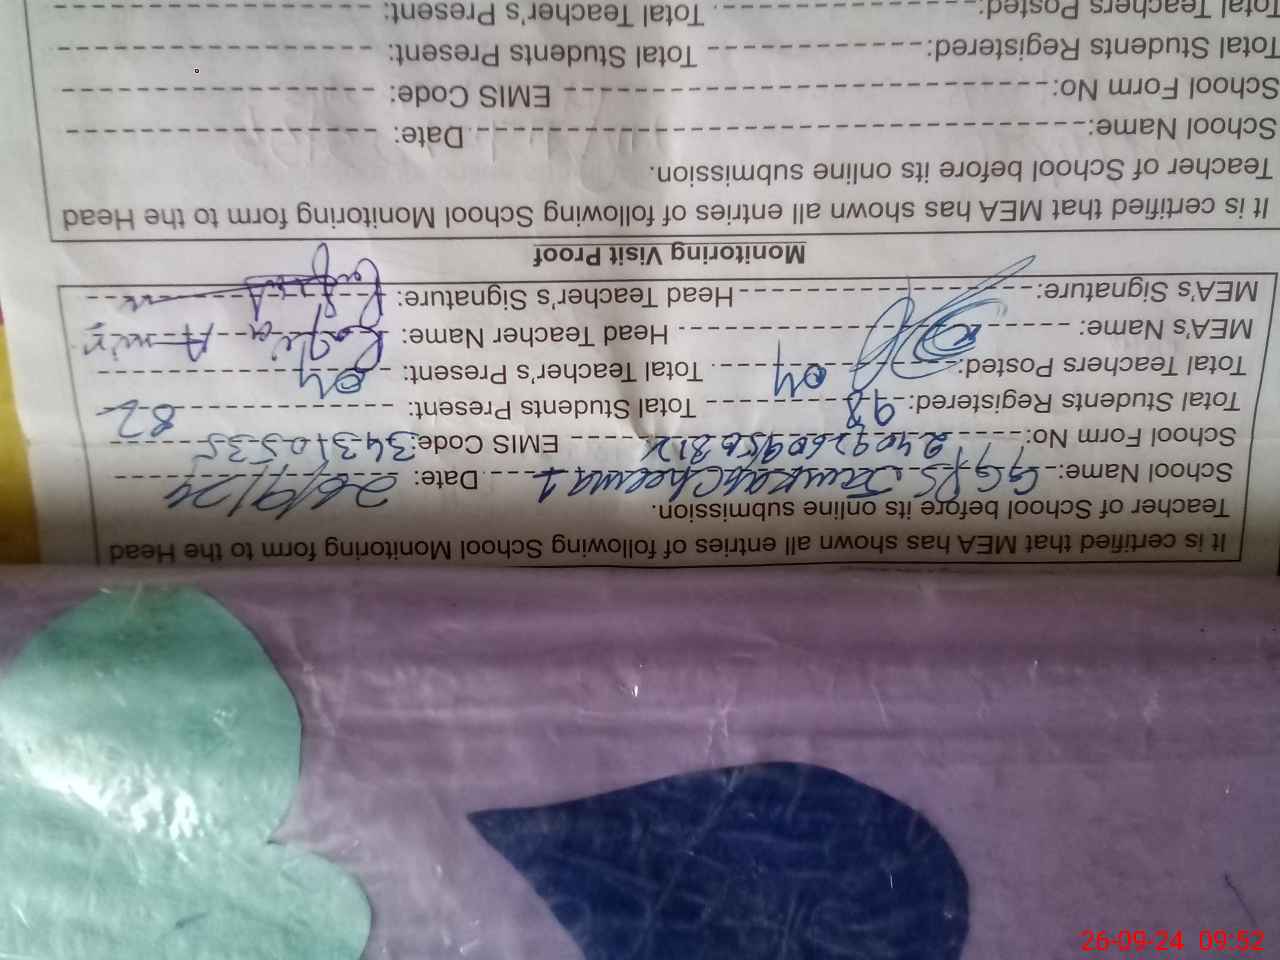 It is certified that MEA has shown all entries of following School Monitoring form to the Head
Teacher of School before its online submission.
School Name: GGPS Cheema 1 Date: 26/9/24
School Form No: 2409260950812 EMIS Code: 34310535
Total Students Registered: 98 Total Students Present: 82
Total Teachers Posted: 04 Total Teacher's Present: 04
MEA'S Name: Head Teacher Name: Rafia Amir
MEA'S Signature: Head Teacher's Signature:
Monitoring Visit Proof
It is certified that MEA has shown all entries of following School Monitoring form to the Head
Teacher of School before its online submission.
School Name: Date:
School Form No: EMIS Code:
Total Students Registered: Total Students Present:
Total Teachers Posted: Total Teacher's Present:
26-09-24 09:52